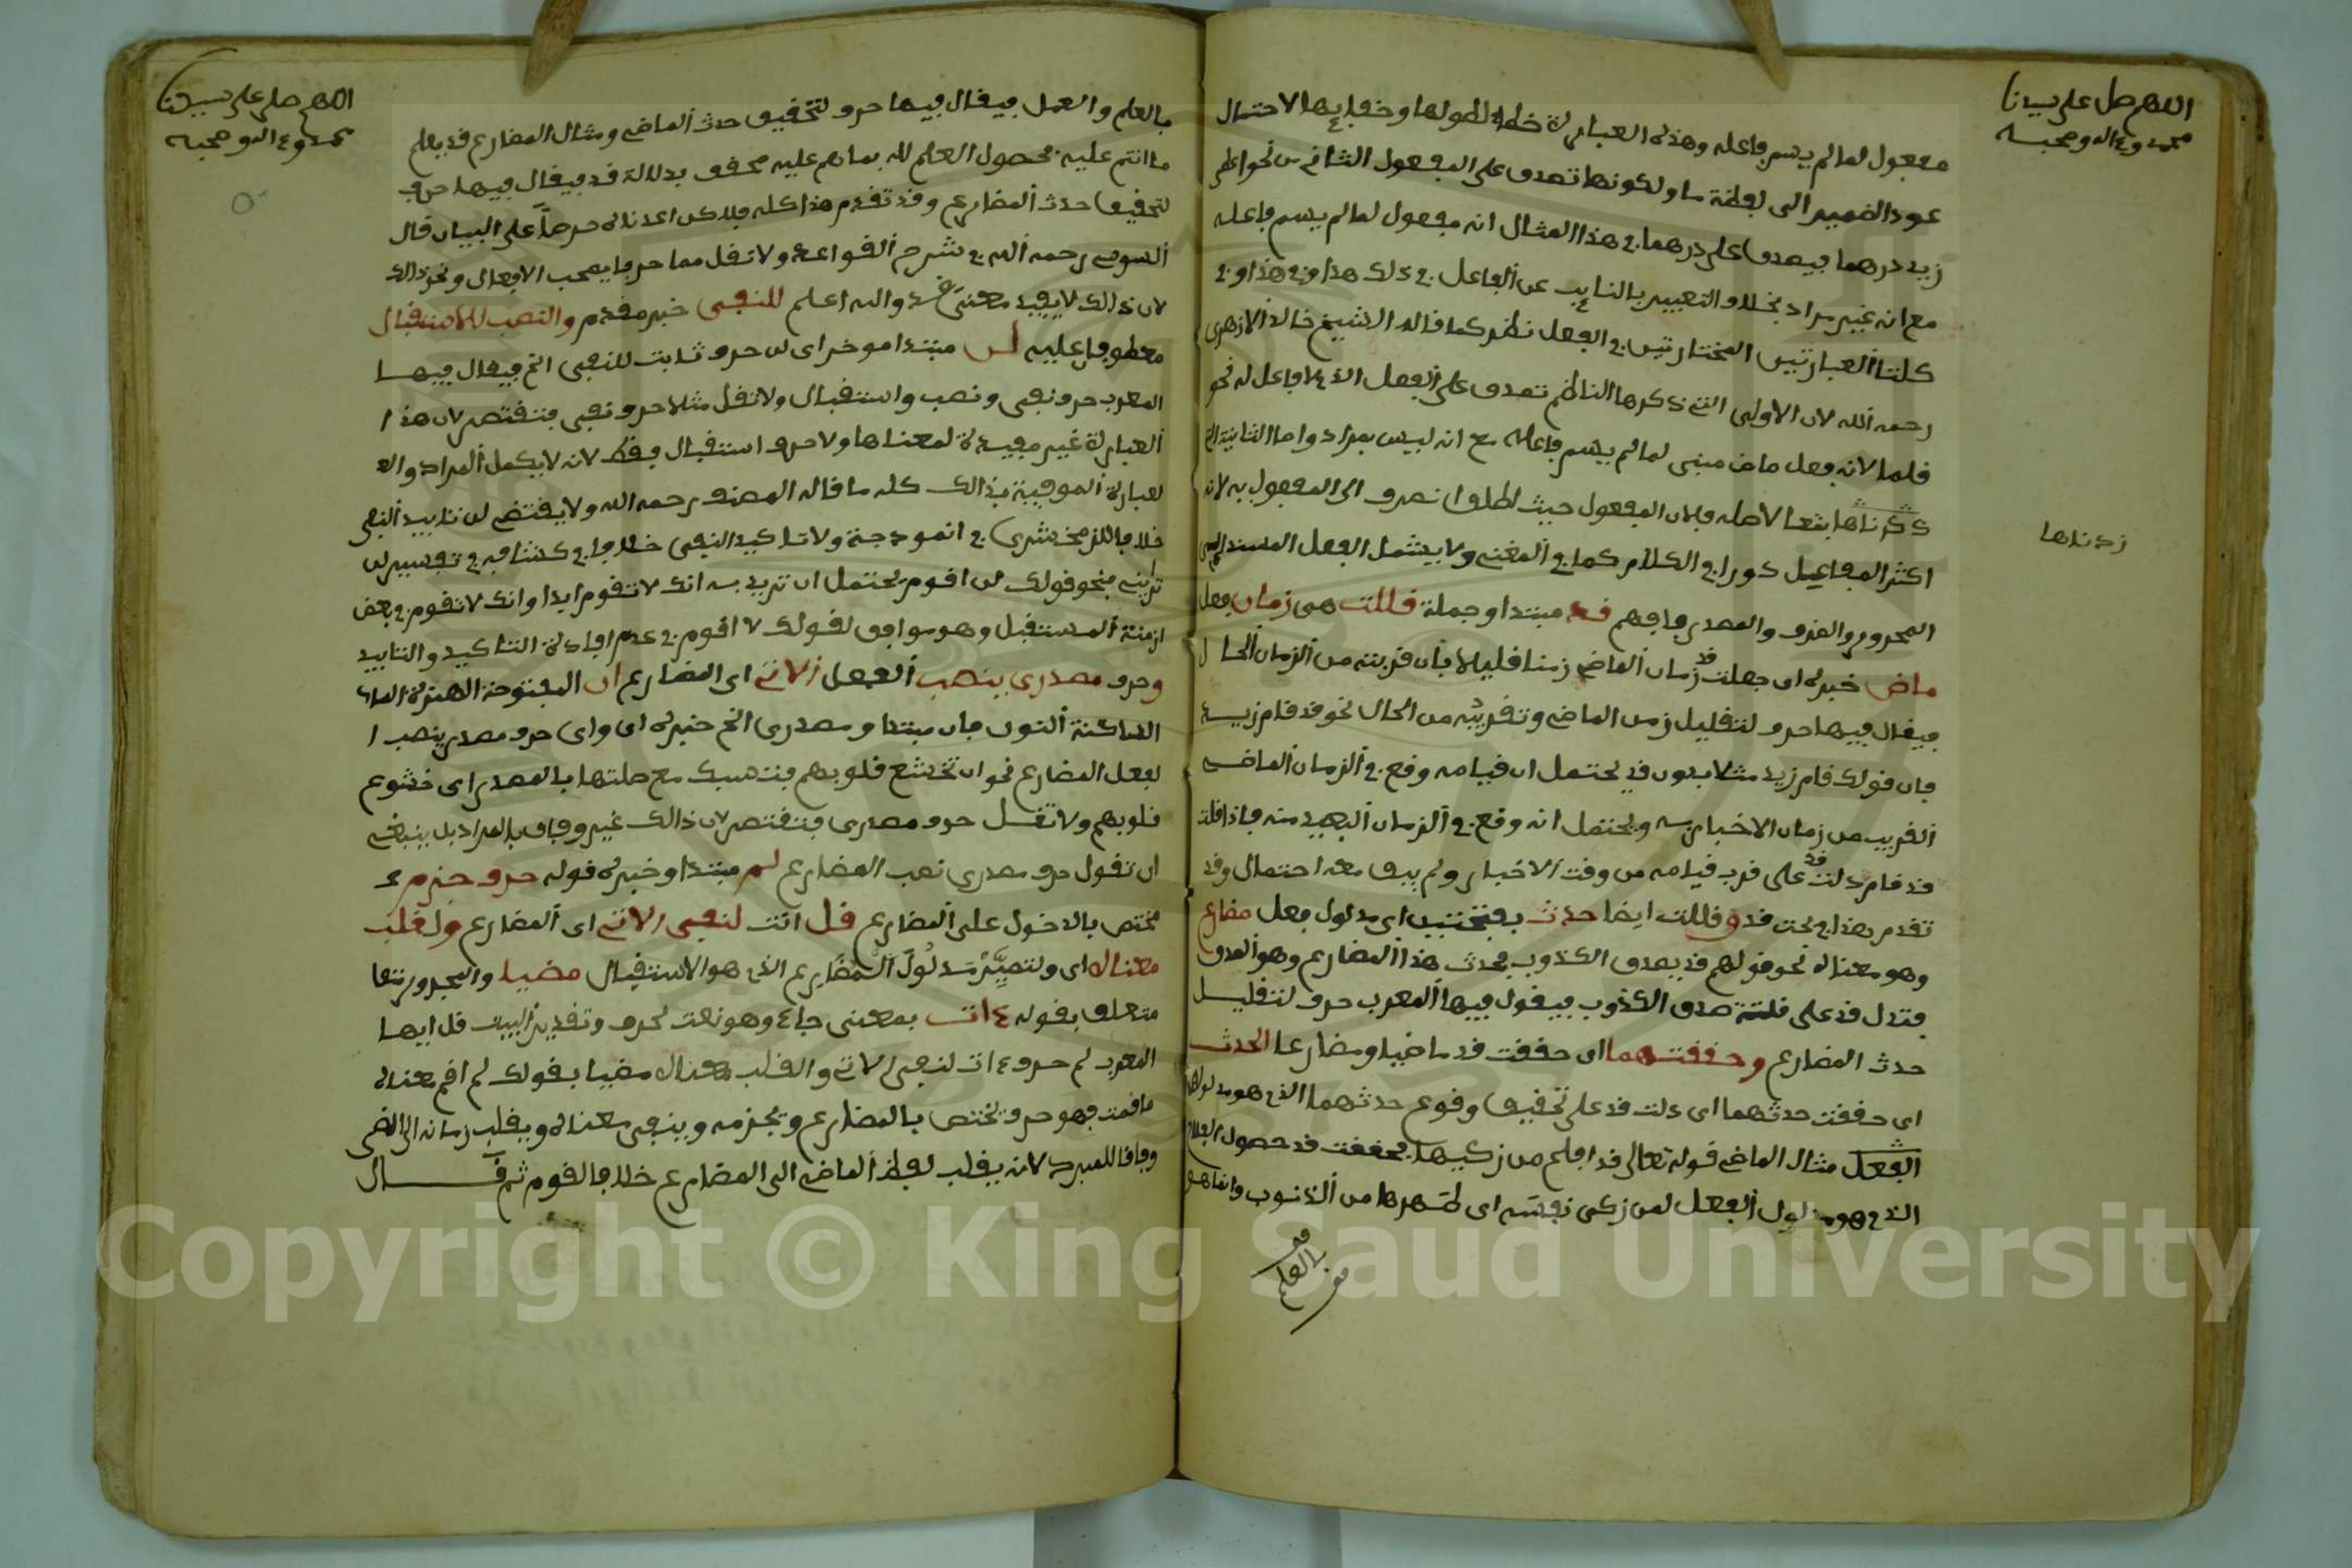 اللهم صل على سيدنا
محمد وءاله وصحبه
مفعول لما لم يسم فاعله وهذه العبارة خطأ لطولها وخفايها لاحتمال
عود الضمير الى لفظة ما ولكونها تصدق على المفعول الثاني من نحو اعطي
زيد درهما فيصدق على درهما في هذا المثال انه مفعول لما لم يسم فاعله
مع انه غير مراد بخلاف التعبير بالنايب عن الفاعل في ذلك هذا وفي
كلتا العبارتين المختارتين في الفعل نظر كما قاله الشيخ خالد الازهري
رحمه الله لان الاولى التي ذكرها الناظم تصدق على الفعل الذي لا فاعل له نحو
قلما لانه فعل ماض مبني لما لم يسم فاعله مع انه ليس بمراد واما الثانية التي
ذكرناها تبعا لاصله فلان المفعول حيث اطلق انصرف الى المفعول به لانه
زدناها
اكثر المفاعيل دورا في الكلام كما في المغني ولا يشمل الفعل المسند الى
المجرور والظرف والمصدر فافهم قد مبتدا وجملة قللت هي زمان فعل
ماض خبره اى جعلت قد زمان الماضي زمنا قليلا بان قربته من الزمان الحال
فيقال فيها حرف لتقليل زمن الماضي وتقريبه من الحال نحو قد قام زيد
فان قولك قام زيد مثلا بدون قد يحتمل ان قيامه وقع في الزمان الماضي
القريب من زمان الاخبار به ويحتمل انه وقع في الزمان البعيد منه فاذا قلت
قد قام دلت قد على قرب قيامه من وقت الاخبار ولم يبق معه احتمال وقد
تقدم هذا في بحث قد وقللت ايضا حدث بفتحتين اى مدلول فعل مضارع
وهو معناه نحو قولهم قد يصدق الكذوب فحدث هذا المضارع وهو الصدق
فتدل قد على قلة صدق الكذوب فيقول فيها المعرب حرف لتقليل
حدث المضارع وحققت هما اى حققت قد ماضيا ومضارعا الحدث
اى حققت حدثهما اى دلت قد على تحقيق وقوع حدثهما الذي هو مدلول
الفعل مثال الماضي قوله تعالى قد افلح من زكيها فحققت قد حصول الفلاح
الذي هو مدلول الفعل لمن زكى نفسه اى طهرها من الذنوب وانما هو
اللهم صل على سيدنا
محمد وءاله وصحبه
بالعلم والعمل فيقال فيها حرف لتحقيق حدث الماضي ومثال المضارع قد يعلم
ما انتم عليه فحصول العلم لله بما هم عليه محقق بدلالة قد فيقال فيها حرف
لتحقيق حدث المضارع وقد تقدم هذا كله ولاكن اعدناه حرصا على البيان قال
السوسي رحمه الله في شرح القواعد ولا تقل مما حرف يصحب الافعال ونحو ذالك
لان ذالك لا يفيد معنى والله اعلم للنفي خبر مقدم والنصب للاستقبال
معطوفان عليه لن مبتدا موخر اى لن حرف ثابت للنفي الخ فيقال فيها
المعرب حرف نفي ونصب واستقبال ولا تقل مثلا حرف نفي فتقتصر لان هذا
العبارة غير مفيدة لمعناها ولا حرف استقبال فقط لانه لا يكمل المراد وال
لعبارة الموفية بذالك كله ما قاله المصنف رحمه الله ولا يقتضي لن تاييد النفي
خلافا للزمخشري في انموذجه ولا تاكيد النفي خلافا في كشافه في تفسير لن
تريني فنحو قولك لن اقوم يحتمل ان تريد به انك لا تقوم ابدا وانك لا تقوم في بعض
ازمنة المستقبل وهو موافق لقولك لا اقوم في عدم افادة التاكيد والتاييد
وحرف مصدري ينصب الفعل الاتي اى المضارع ان المفتوحة الهمزة
الساكنة النون فان مبتدا ومصدري الخ خبره اى واى حرف مصدر ينصب ا
لفعل المضارع نحو ان تخشع قلوبهم فتنسبك مع صلتها بالمصدر اى خشوع
قلوبهم ولا تقل حرف مصدري فتقتصر لان ذالك غير واف بالمراد بل ينبغي
ان تقول حرف مصدري نصب المضارع لم مبتدا وخبره قوله حرف جزم
مختص بالدخول على المضارع قل اتت لنفي الاتي اى المضارع ولقلب
معناه اى ولتصير مدلول المضارع الذي هو الاستقبال مضيا والمجرور
متعلق بقوله ءات بمعنى جاء وهو نعت لحرف وتقدير البيت قل ايها
المعرب لم حرف ءات لنفي الاتي والقلب معناه مضيا بقولك لم اقم معناه
ما قمت فهو حرف يختص بالمضارع ويجزمه وينفي معناه ويقلب زمانه الى المضي
وفاقا للمبرد لانه يقلب لفظ الماضي الى المضارع خلافا لقوم ثم قال
Copyright © King Saud University